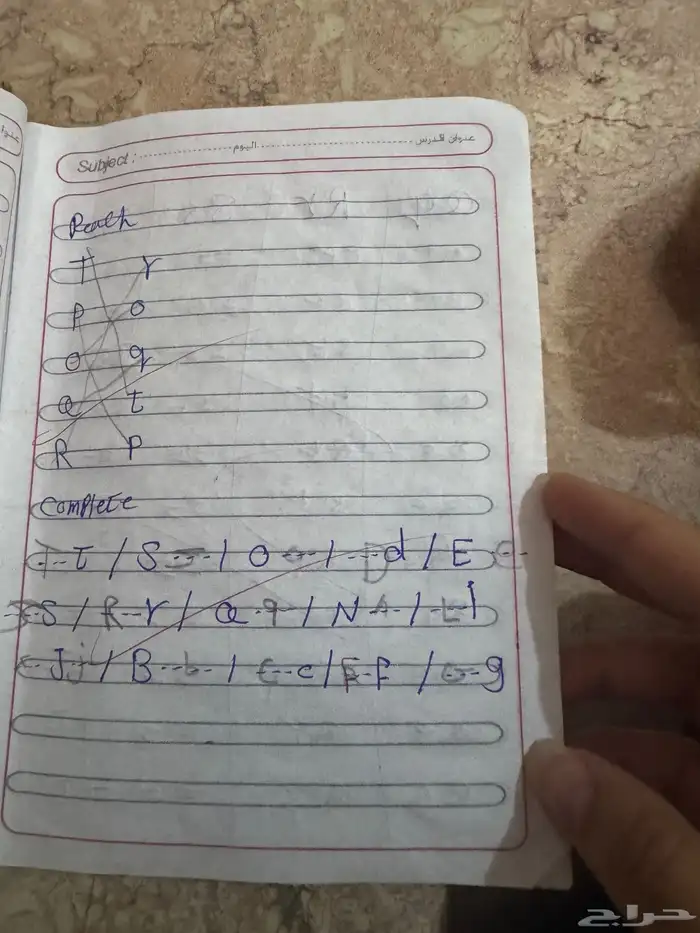 Subject: اليوم عنوان الدرس
T r
P o
O q
Q t
R P
Complete
T t / S s / O o / D d / E e
S / R r / Q q / N / L l
J j / B b / C c / F f / G g
حراج